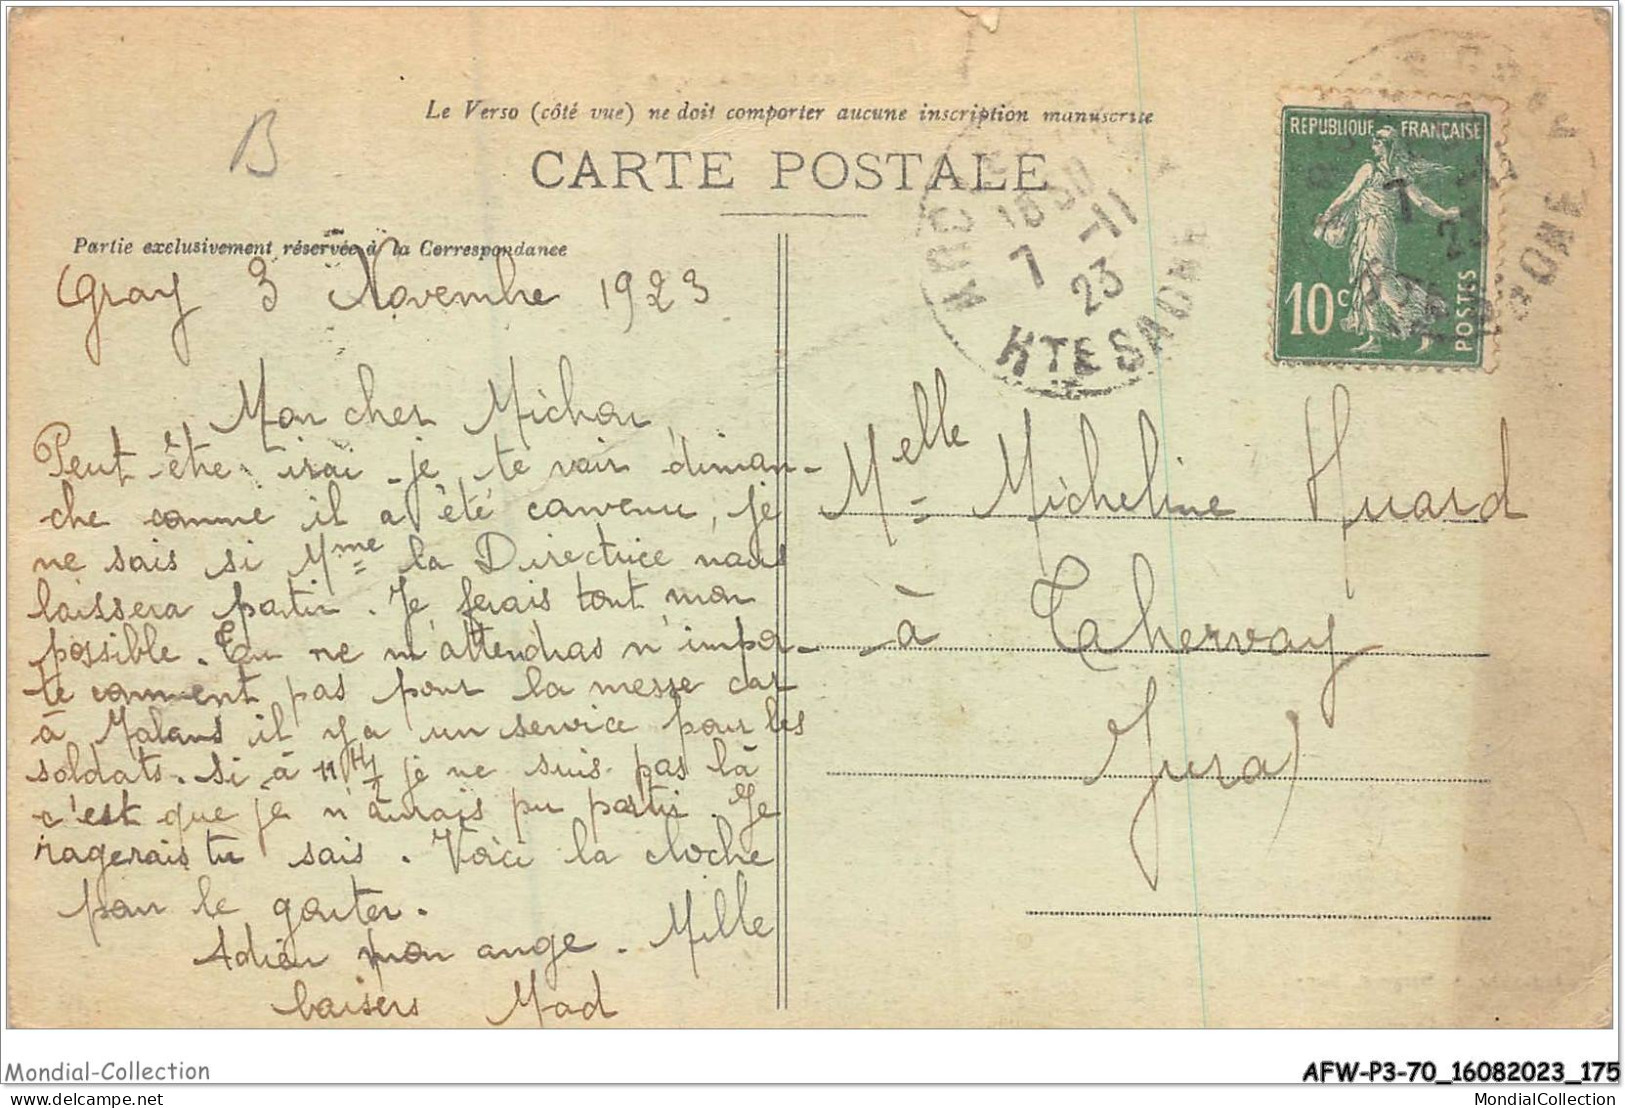 B
Le Verso (côté vue) ne doit comporter aucune inscription manuscrite
CARTE POSTALE
Partie exclusivement réservée à la Correspondance
Gray 3 Novembre 1923
Mon cher Michou,
Peut être irai-je te voir diman-
che comme il a été convenu, je
ne sais si Mme la Directrice nous
laissera partir. Je ferais tout mon
possible. Tu ne m'attendras n'impor-
te comment pas pour la messe car
à Malans il y a un service pour les
soldats. Si à 11H½ je ne suis pas là
c'est que je n'aurais pu partir. Je
ragerais tu sais. Voici la cloche
pour le gouter.
Adieu mon ange. Mille
baisers Mad
REPUBLIQUE FRANÇAISE
10c
POSTES
18 30
7 -11
23
HTE SAONE
Melle Micheline Huard
à Thervay
Jura)
Mondial-Collection
AFW-P3-70_16082023_175
delcampe.net
MondialCollection